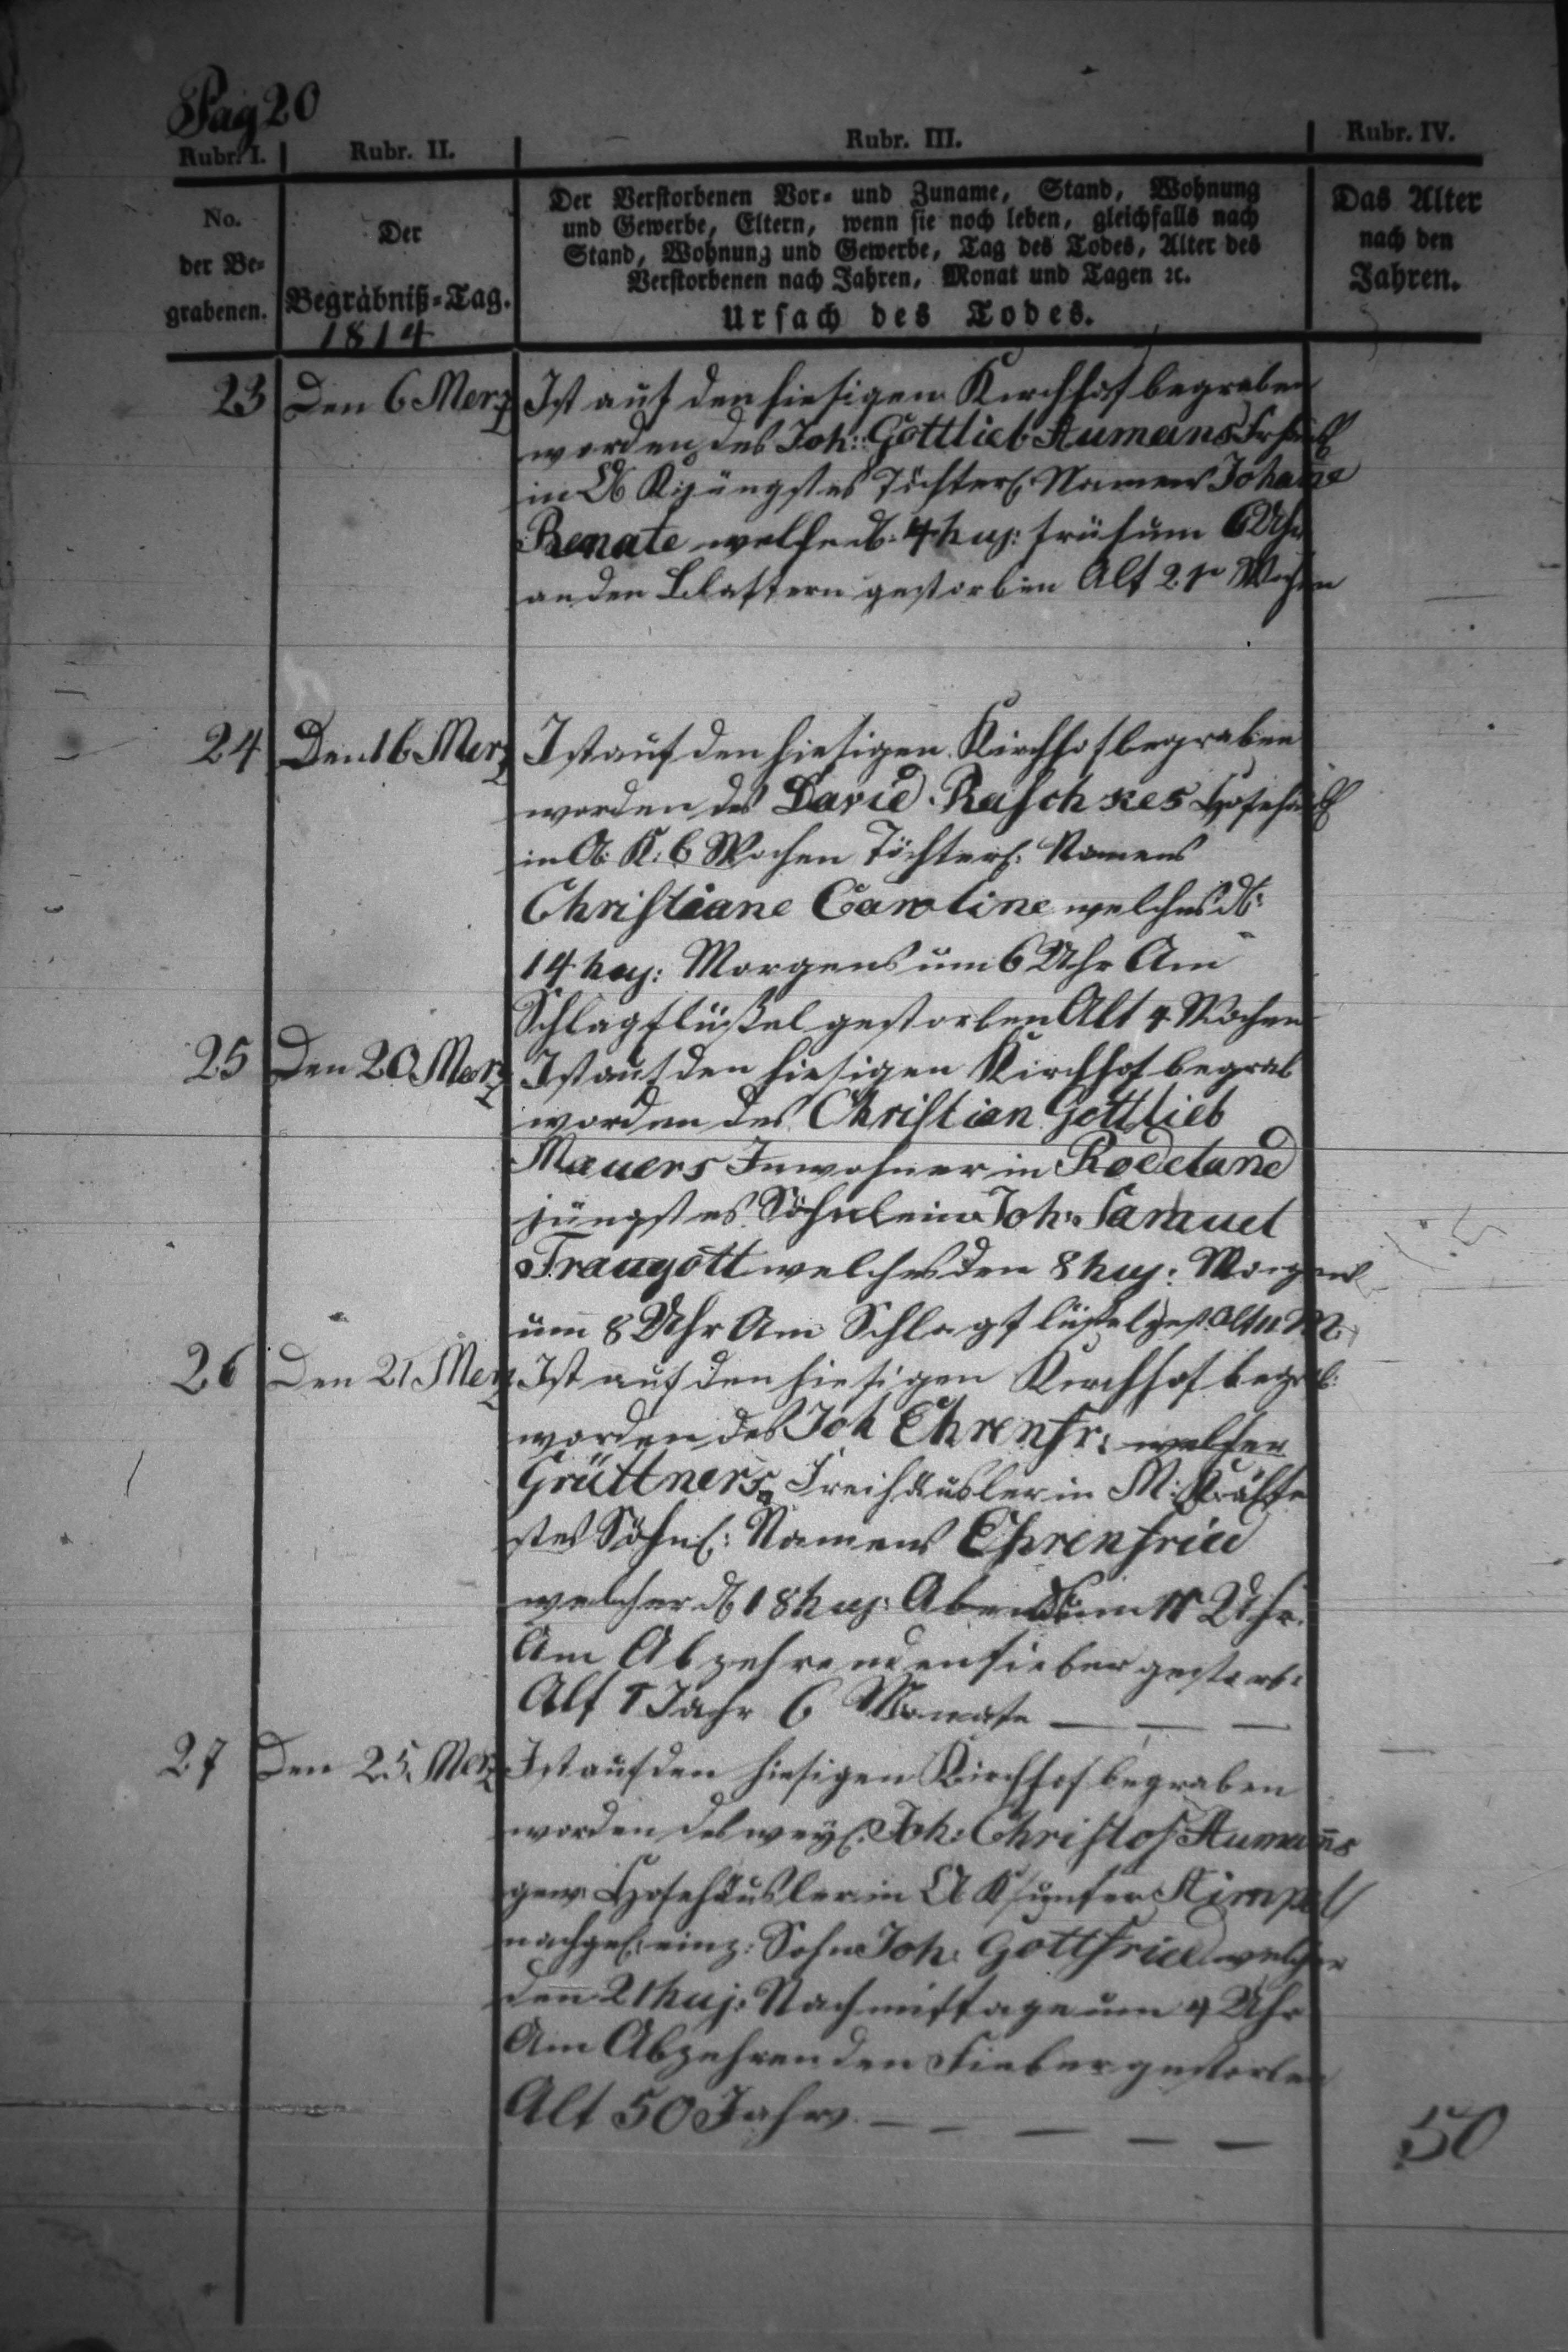 Pag 20
Rubr. I. Rubr. II. Rubr. III. Rubr. IV.
No.
der Be-
grabenen.
Der
Begräbniß-Tag.
1814
Der Verstorbenen Vor- und Zuname, Stand, Wohnung
und Gewerbe, Eltern, wenn sie noch leben, gleichfalls nach
Stand, Wohnung und Gewerbe, Tag des Todes, Alter des
Verstorbenen nach Jahren, Monat und Tagen ꝛc.
Ursach des Todes.
Das Alter
nach den
Jahren.
23 Den 6 Merz Ist auf den hiesigen Kirchhof begraben
worden des Joh: Gottlieb Aumans
in K jüngstes Töchterl: Namens Johañe
Renate welche d: 4 huj: früh um 6 Uhr
an den Blattern gestorben Alt Wochen
24 Den 16 Merz Ist auf den hiesigen Kirchhof begraben
worden des David Raschkes Hofehäusl
in K: 6 Wochen Töchterl: Namens
Christiane Caroline welches d:
14 huj: Morgens um 6 Uhr Am
Schlagflüßel gestorben Alt 4 Wochen
25 Den 20 Merz Ist auf den hiesigen Kirchhof begrab
worden des Christian Gottlieb
Mauers Inwohner in Rodeland
jüngstes Söhnlein Joh: Samuel
Traugott welches den 8 huj: Morgens
um 8 Uhr Am Schlagflüßel gest: Alt 11 M:
26 Den 21 Merz Ist auf den hiesigen Kirchhof begrab:
worden des Joh Ehrenfr: welcher
Grüttners Freihäusler in M:
stes Söhnl: Namens Ehrenfried
welcher d 18 huj: Abends um 11 Uhr
Am Abzehrendenfieber gestorb:
Alt 1 Jahr 6 Monate — — —
27 Den 25. Merz Ist auf den hiesigen Kirchhof begraben
worden des weyl: Joh: Christof Aumañs
gew: Hofehäusler in K
nachgel: einz: Sohn Joh: Gottfried welcher
den 21 huj: Nachmittage um 4 Uhr
Am Abzehrenden Fieber gestorben
Alt 50 Jahr. — — — — — 50